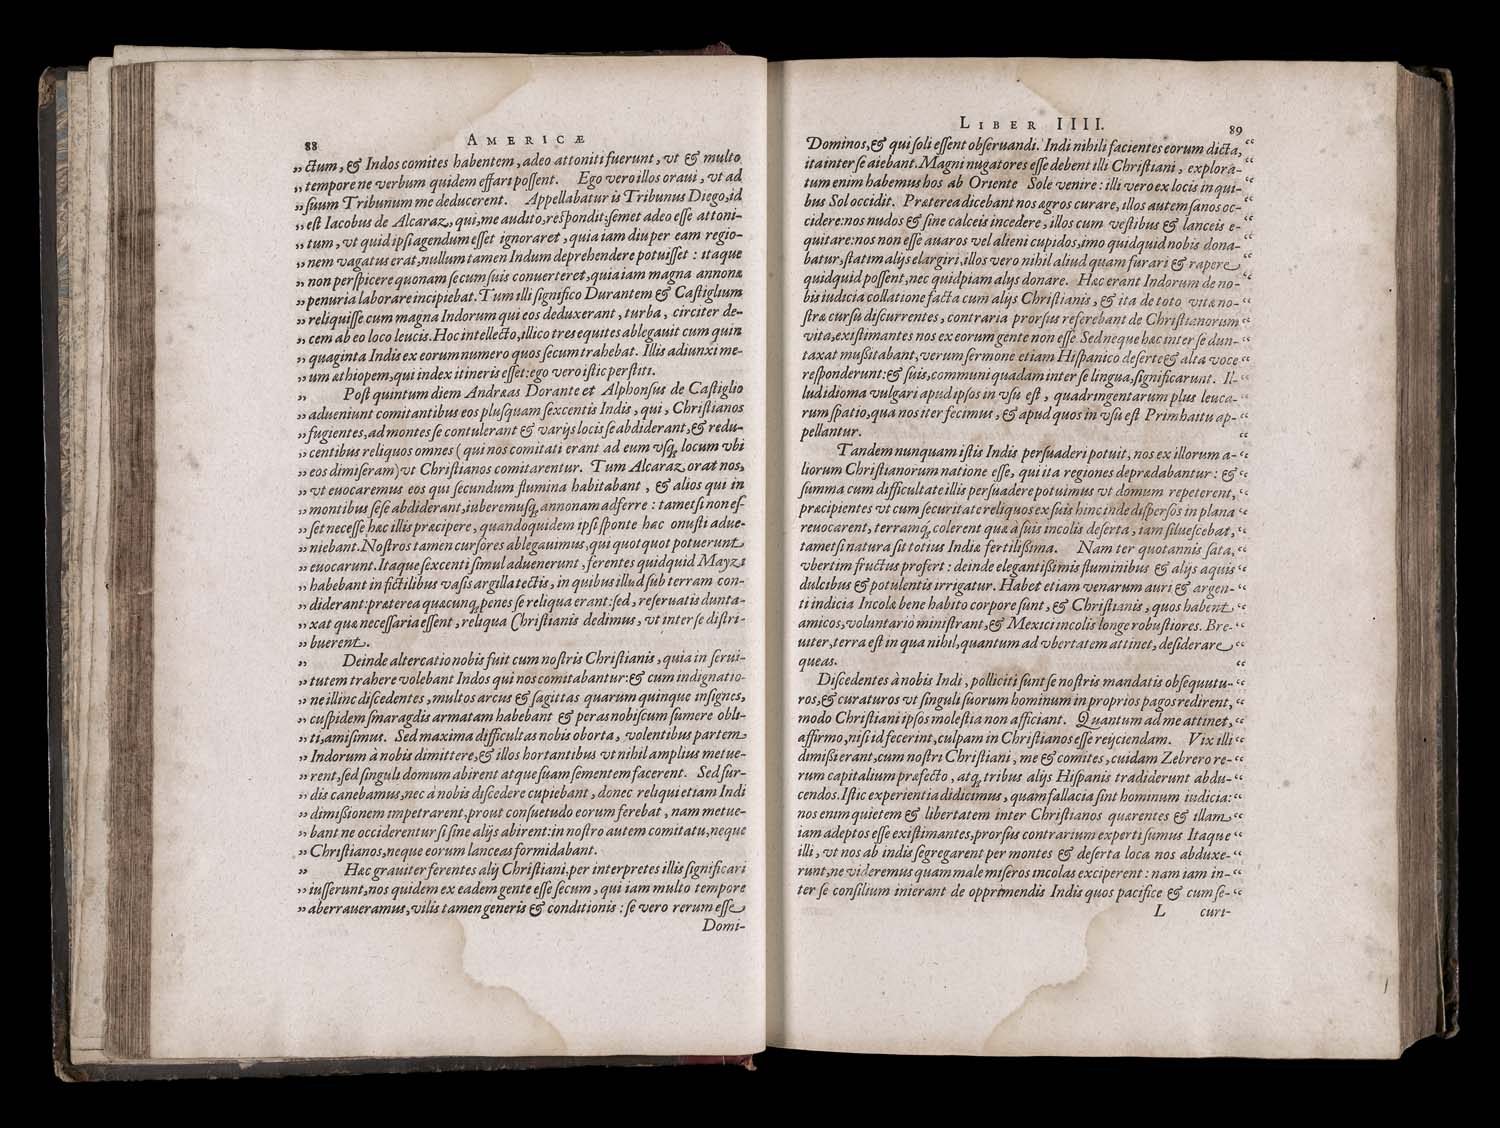 88
AMERICÆ
„ ctum, & Indos comites habentem, adeo attoniti fuerunt, vt & multo
„ tempore ne verbum quidem effari possent. Ego vero illos oraui, vt ad
„ suum Tribunum me deducerent. Appellabatur is Tribunus Diego, id
„ est Iacobus de Alcaraz, qui, me audito, respondit: semet adeo esse attoni-
„ tum, vt quid ipsi agendum esset ignoraret, quia iam diu per eam regio-
„ nem vagatus erat, nullum tamen Indum deprehendere potuisset: itaque
„ non perspicere quonam se cum suis conuerteret, quia iam magna annonæ
„ penuria laborare incipiebat. Tum illi significo Durantem & Castiglium
„ reliquisse cum magna Indorum qui eos deduxerant, turba, circiter de-
„ cem ab eo loco leucis. Hoc intellecto, illico tres equites ablegauit cum quin
„ quaginta Indis ex eorum numero quos secum trahebat. Illis adiunxi me-
„ um æthiopem, qui index itineris esset: ego vero istic perstiti.
„ Post quintum diem Andræas Dorante et Alphonsus de Castiglio
„ adueniunt comitantibus eos plusquam sexcentis Indis, qui, Christianos
„ fugientes, ad montes se contulerant & varijs locis se abdiderant, & redu-
„ centibus reliquos omnes (qui nos comitati erant ad eum vsq; locum vbi
„ eos dimiseram) vt Christianos comitarentur. Tum Alcaraz orat nos,
„ vt euocaremus eos qui secundum flumina habitabant, & alios qui in
„ montibus sese abdiderant, iuberemusq; annonam adferre: tametsi non es-
„ set necesse hæc illis præcipere, quandoquidem ipsi sponte hæc onusti adue-
„ niebant. Nostros tamen cursores ablegauimus, qui quotquot potuerunt
„ euocarunt. Itaque sexcenti simul aduenerunt, ferentes quidquid Mayzi
„ habebant in fictilibus vasis argilla tectis, in quibus illud sub terram con-
„ diderant: præterea quæcunq; penes se reliqua erant: sed, reseruatis dunta-
„ xat quæ necessaria essent, reliqua Christianis dedimus, vt inter se distri-
„ buerent.
„ Deinde altercatio nobis fuit cum nostris Christianis, quia in serui-
„ tutem trahere volebant Indos qui nos comitabantur: & cum indignatio-
„ ne illinc discedentes, multos arcus & sagittas quarum quinque insignes,
„ cuspidem smaragdis armatam habebant & peras nobiscum sumere obli-
„ ti, amisimus. Sed maxima difficultas nobis oborta, volentibus partem
„ Indorum à nobis dimittere, & illos hortantibus vt nihil amplius metue-
„ rent, sed singuli domum abirent atque suam sementem facerent. Sed sur-
„ dis canebamus, nec à nobis discedere cupiebant, donec reliqui etiam Indi
„ dimissionem impetrarent, prout consuetudo eorum ferebat, nam metue-
„ bant ne occiderentur si sine alijs abirent: in nostro autem comitatu, neque
„ Christianos, neque eorum lanceas formidabant.
„ Hæc grauiter ferentes alij Christiani, per interpretes illis significari
„ iusserunt, nos quidem ex eadem gente esse secum, qui iam multo tempore
„ aberraueramus, vilis tamen generis & conditionis: se vero rerum esse
Domi-
LIBER IIII.
89
Dominos, & qui soli essent obseruandi. Indi nihili facientes eorum dicta, “
ita inter se aiebant. Magni nugatores esse debent illi Christiani, explora- “
tum enim habemus hos ab Oriente Sole venire: illi vero ex locis in qui- “
bus Sol occidit. Præterea dicebant nos ægros curare, illos autem sanos oc- “
cidere: nos nudos & sine calceis incedere, illos cum vestibus & lanceis e- “
quitare: nos non esse auaros vel alieni cupidos, imo quidquid nobis dona- “
batur, statim alijs elargiri, illos vero nihil aliud quam furari & rapere “
quidquid possent, nec quidpiam alijs donare. Hæc erant Indorum de no- “
bis iudicia collatione facta cum alijs Christianis, & ita de toto vitæ no- “
stræ cursu discurrentes, contraria prorsus referebant de Christianorum “
vita, existimantes nos ex eorum gente non esse. Sed neque hæc inter se dun- “
taxat mussitabant, verum sermone etiam Hispanico deserte & alta voce “
responderunt: & suis, communi quadam inter se lingua, significarunt. Il- “
lud idioma vulgari apud ipsos in vsu est, quadringentarum plus leuca- “
rum spatio, qua nos iter fecimus, & apud quos in vsu est Primhaitu ap- “
pellantur. “
Tandem nunquam istis Indis persuaderi potuit, nos ex illorum a- “
liorum Christianorum natione esse, qui ita regiones deprædabantur: & “
summa cum difficultate illis persuadere potuimus vt domum repeterent, “
præcipientes vt cum securitate reliquos ex suis hinc inde dispersos in plana “
reuocarent, terramq; colerent quæ à suis incolis deserta, iam siluescebat, “
tametsi natura sit totius Indiæ fertilissima. Nam ter quotannis sata, “
vbertim fructus profert: deinde elegantissimis fluminibus & alijs aquis “
dulcibus & potulentis irrigatur. Habet etiam venarum auri & argen- “
ti indicia Incolæ bene habito corpore sunt, & Christianis, quos habent “
amicos, voluntario ministrant, & Mexici incolis longe robustiores. Bre- “
uiter, terra est in qua nihil, quantum ad vbertatem attinet, desiderare “
queas. “
Discedentes à nobis Indi, polliciti sunt se nostris mandatis obsequutu- “
ros, & curaturos vt singuli suorum hominum in proprios pagos redirent, “
modo Christiani ipsos molestia non afficiant. Quantum ad me attinet, “
affirmo, nisi id fecerint, culpam in Christianos esse reijciendam. Vix illi “
dimissi erant, cum nostri Christiani, me & comites, cuidam Zebrero re- “
rum capitalium præfecto, atq; tribus alijs Hispanis tradiderunt abdu- “
cendos. Istic experientia didicimus, quam fallacia sint hominum iudicia: “
nos enim quietem & libertatem inter Christianos quærentes & illam “
iam adeptos esse existimantes, prorsus contrarium experti sumus Itaque “
illi, vt nos ab indis segregarent per montes & deserta loca nos abduxe- “
runt, ne videremus quam male miseros incolas exciperent: nam iam in- “
ter se consilium inierant de opprimendis Indis quos pacifice & cum se- “
L curi-